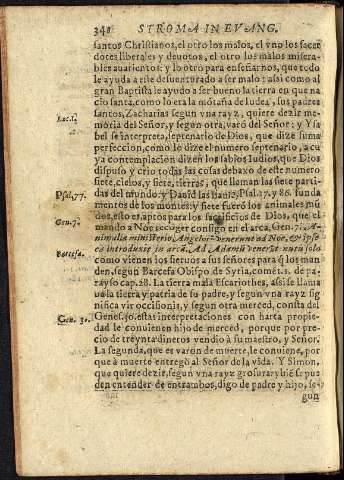 342 STROMA IN EVANG.
santos Christianos, el otro los malos, el vno los sacer
dotes liberales y deuotos, el otro los malos misera-
bles auarientos: y lo otro para enseñarnos, que todo
le ayuda a este desuenturado a ser malo: assi como al
gran Baptista le ayudo a ser bueno la tierra en que na
cio santa, como lo era la mõtaña de Iudea, sus padres
Luc. 1.
santos, Zacharias segun vna rayz, quiere dezir me
moria del Señor, y segun otra, varõ del Señor: y Ysa
bel se interpreta, septenario de Dios, que dize suma
perfeccion, como lo dize el numero septenario, a cu
ya contemplacion dizen los sabios Iudios, que Dios
dispuso y crio todas las cosas debaxo de este numero
siete, cielos, y siete, tierras, que llaman las siete parti
Psal. 77.
das del mundo, y Dauid las llamò, Psal. 77. y 86. funda
mentos de los montes: y siete fuerõ los animales mũ
dos, esto es, aptos para los sacrificios de Dios, que el
Gen. 7.
mando a Noe recoger consigo en el arca, Gen. 7. A-
nimalia ministerio Angelorum venerunt ad Noe, & ipse
ea introduxit in arcã. Ad Adamũ venerũt nutu solo
Barcefa.
como vienen los sieruos a sus señores para q los man
den, segun Barcefa Obispo de Syria, comẽt. 1. de pa-
rayso cap. 28. La tierra mala Escariothes, assi se llama
ua la tierra y patria de su padre, y segun vna rayz sig
nifica vir occisionis, y segun otra merced, consta del
Gen. 30.
Genes. 30. estas interpretaciones con harta propie-
dad le conuienen hijo de merced, porque por pre-
cio de treynta dineros vendio à su maestro, y Señor.
La segunda, que es varon de muerte, le conuiene, por
que a muerte entregò al Señor de la vida. Y Simon,
que quiere dezir, segun vna rayz grosura: y biẽ se pue
den entender de entrambos, digo de padre y hijo, se-
gun